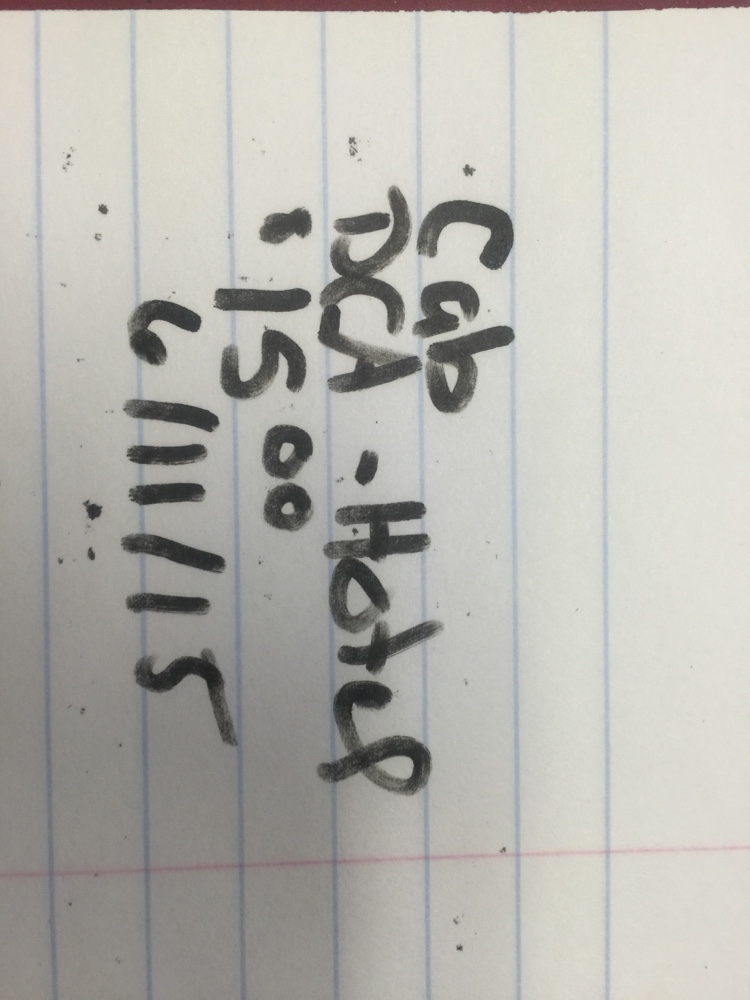 Cab
DCA - Hotel
15 00
6/11/15